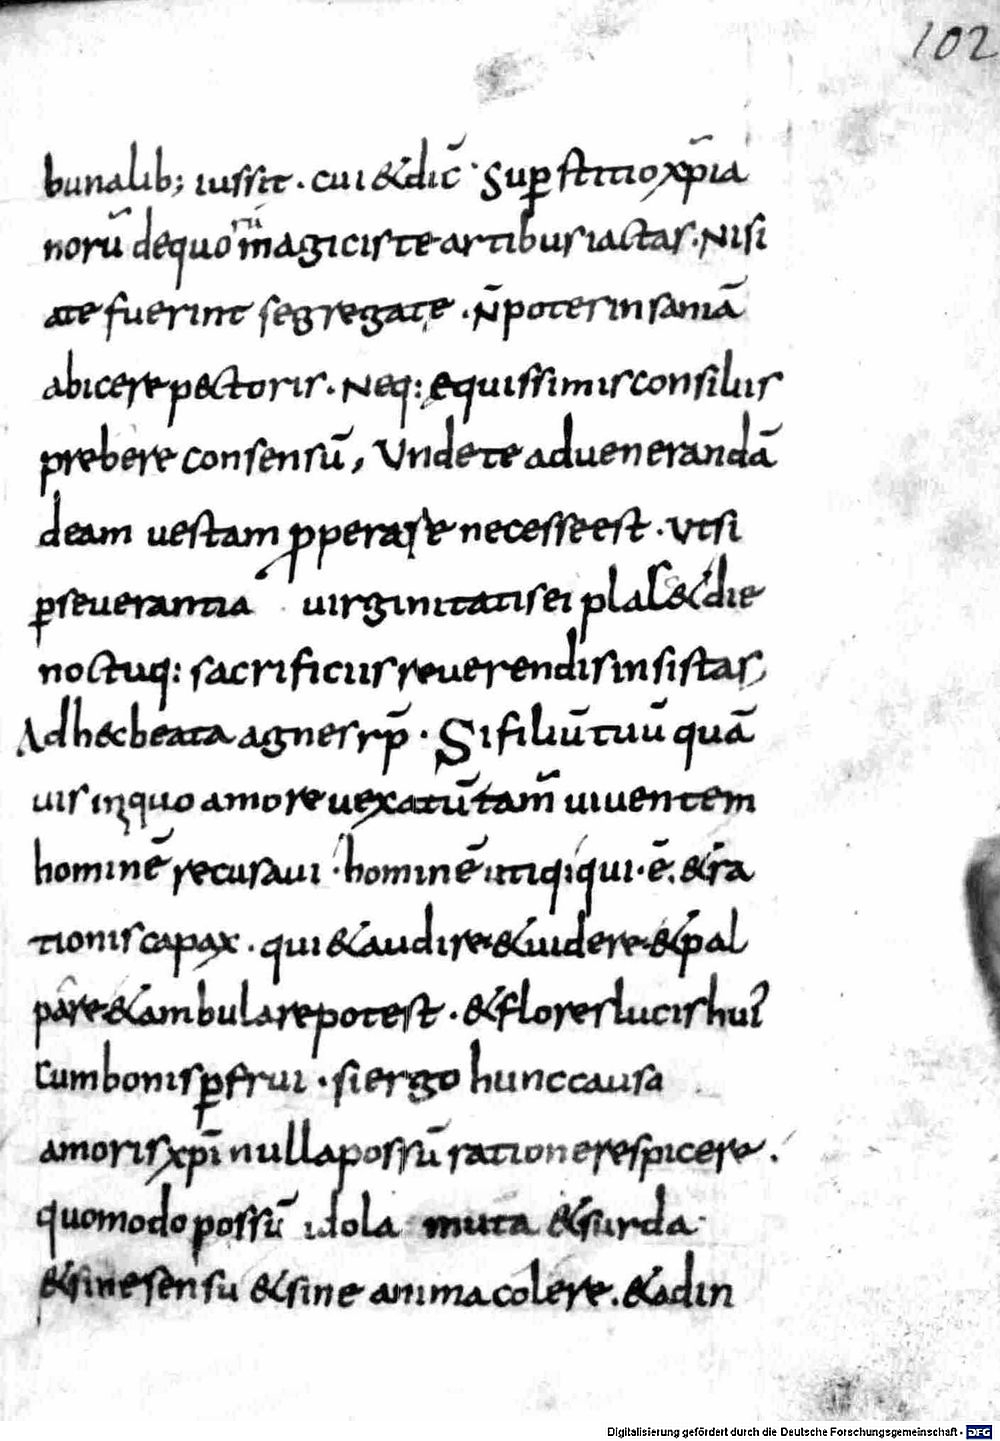 102
bunalib; iussit. cui & dic̄ Sup̱stitio xp̄ia
norū de quorū m̄agicis te artibus iactas. Nisi
a te fuerint segregate. N̄ potes insaniā
abicere pectoris. Neq: equissimis consiliis
prebere consensū, Unde te ad uenerandā
deam uestam ꝓperare necesse est. Vt si
ꝑseuerantia uirginitatis ei plac& die
noctuq: sacrificiis reuerendis insistas,
Ad hec beata agnes rp̄. Si filiū tuū quā
uis iniquo amore uexatū tam̄ uiuentem
hominē recusaui. hominē utiq; qui. ē. & ra
tionis capax. qui & audire & uidere & pal
pare & ambulare potest. & flores lucis hui'
cum bonis ꝑfrui. si ergo hunc causa
amoris xp̄i nulla possū ratione respicere.
quomodo possū idola muta & surda
& sine sensu & sine anima colere. & ad in
Digitalisierung gefördert durch die Deutsche Forschungsgemeinschaft - DFG